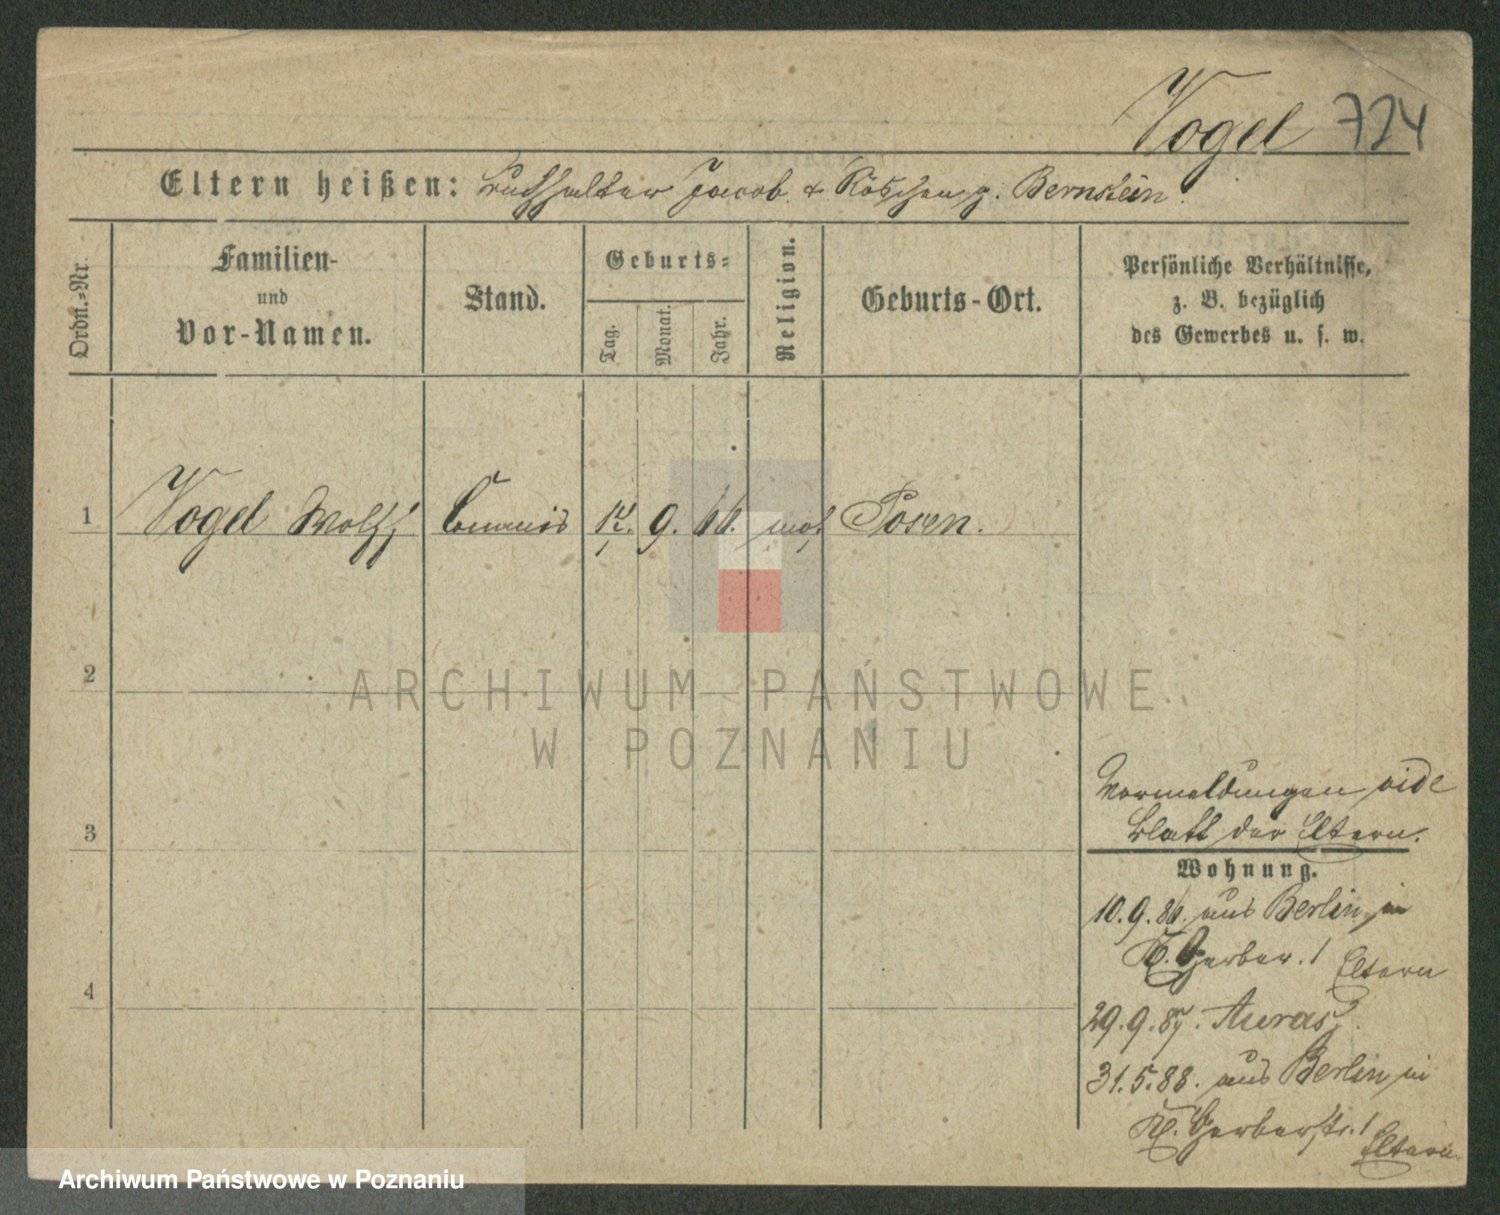 Vogel 724
Eltern heißen: Buchhalter Jacob & Röschen g. Bernstein.
Ordn.-Nr.
Familien-
und
Vor-Namen.
Stand.
Geburts-
Tag.
Monat.
Jahr.
Religion.
Geburts-Ort.
Persönliche Verhältnisse,
z. B. bezüglich
des Gewerbes u. s. w.
1 Vogel Wolff Commis 9. 66. mos. Posen.
2
ARCHIWUM PAŃSTWOWE
W POZNANIU
3
Vormeldungen vide
Blatt der Eltern.
Wohnung.
10.9.86. aus Berlin, in
Kl. Gerber. 1 Eltern
4
29.9.87. Auras.
31.5.88. aus Berlin, in
Kl. Gerberstr. 1
Eltern
Archiwum Państwowe w Poznaniu